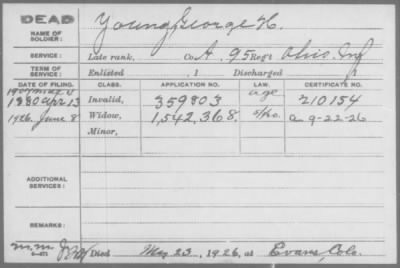 DEAD
NAME OF SOLDIER: Young, George H.
SERVICE: Late rank, Co. A, 95 Reg't Ohio Inf
TERM OF SERVICE: Enlisted , 1 Discharged , 1
DATE OF FILING. CLASS. APPLICATION NO. LAW. CERTIFICATE NO.
age
1880 Apr 13 Invalid, 359803 210154
1926 June 8 Widow, 1,542,368. Ohio. a 9-22-26
Minor,
ADDITIONAL SERVICES:
REMARKS:
m.m. Died May 23, 1926, at Evans, Colo.